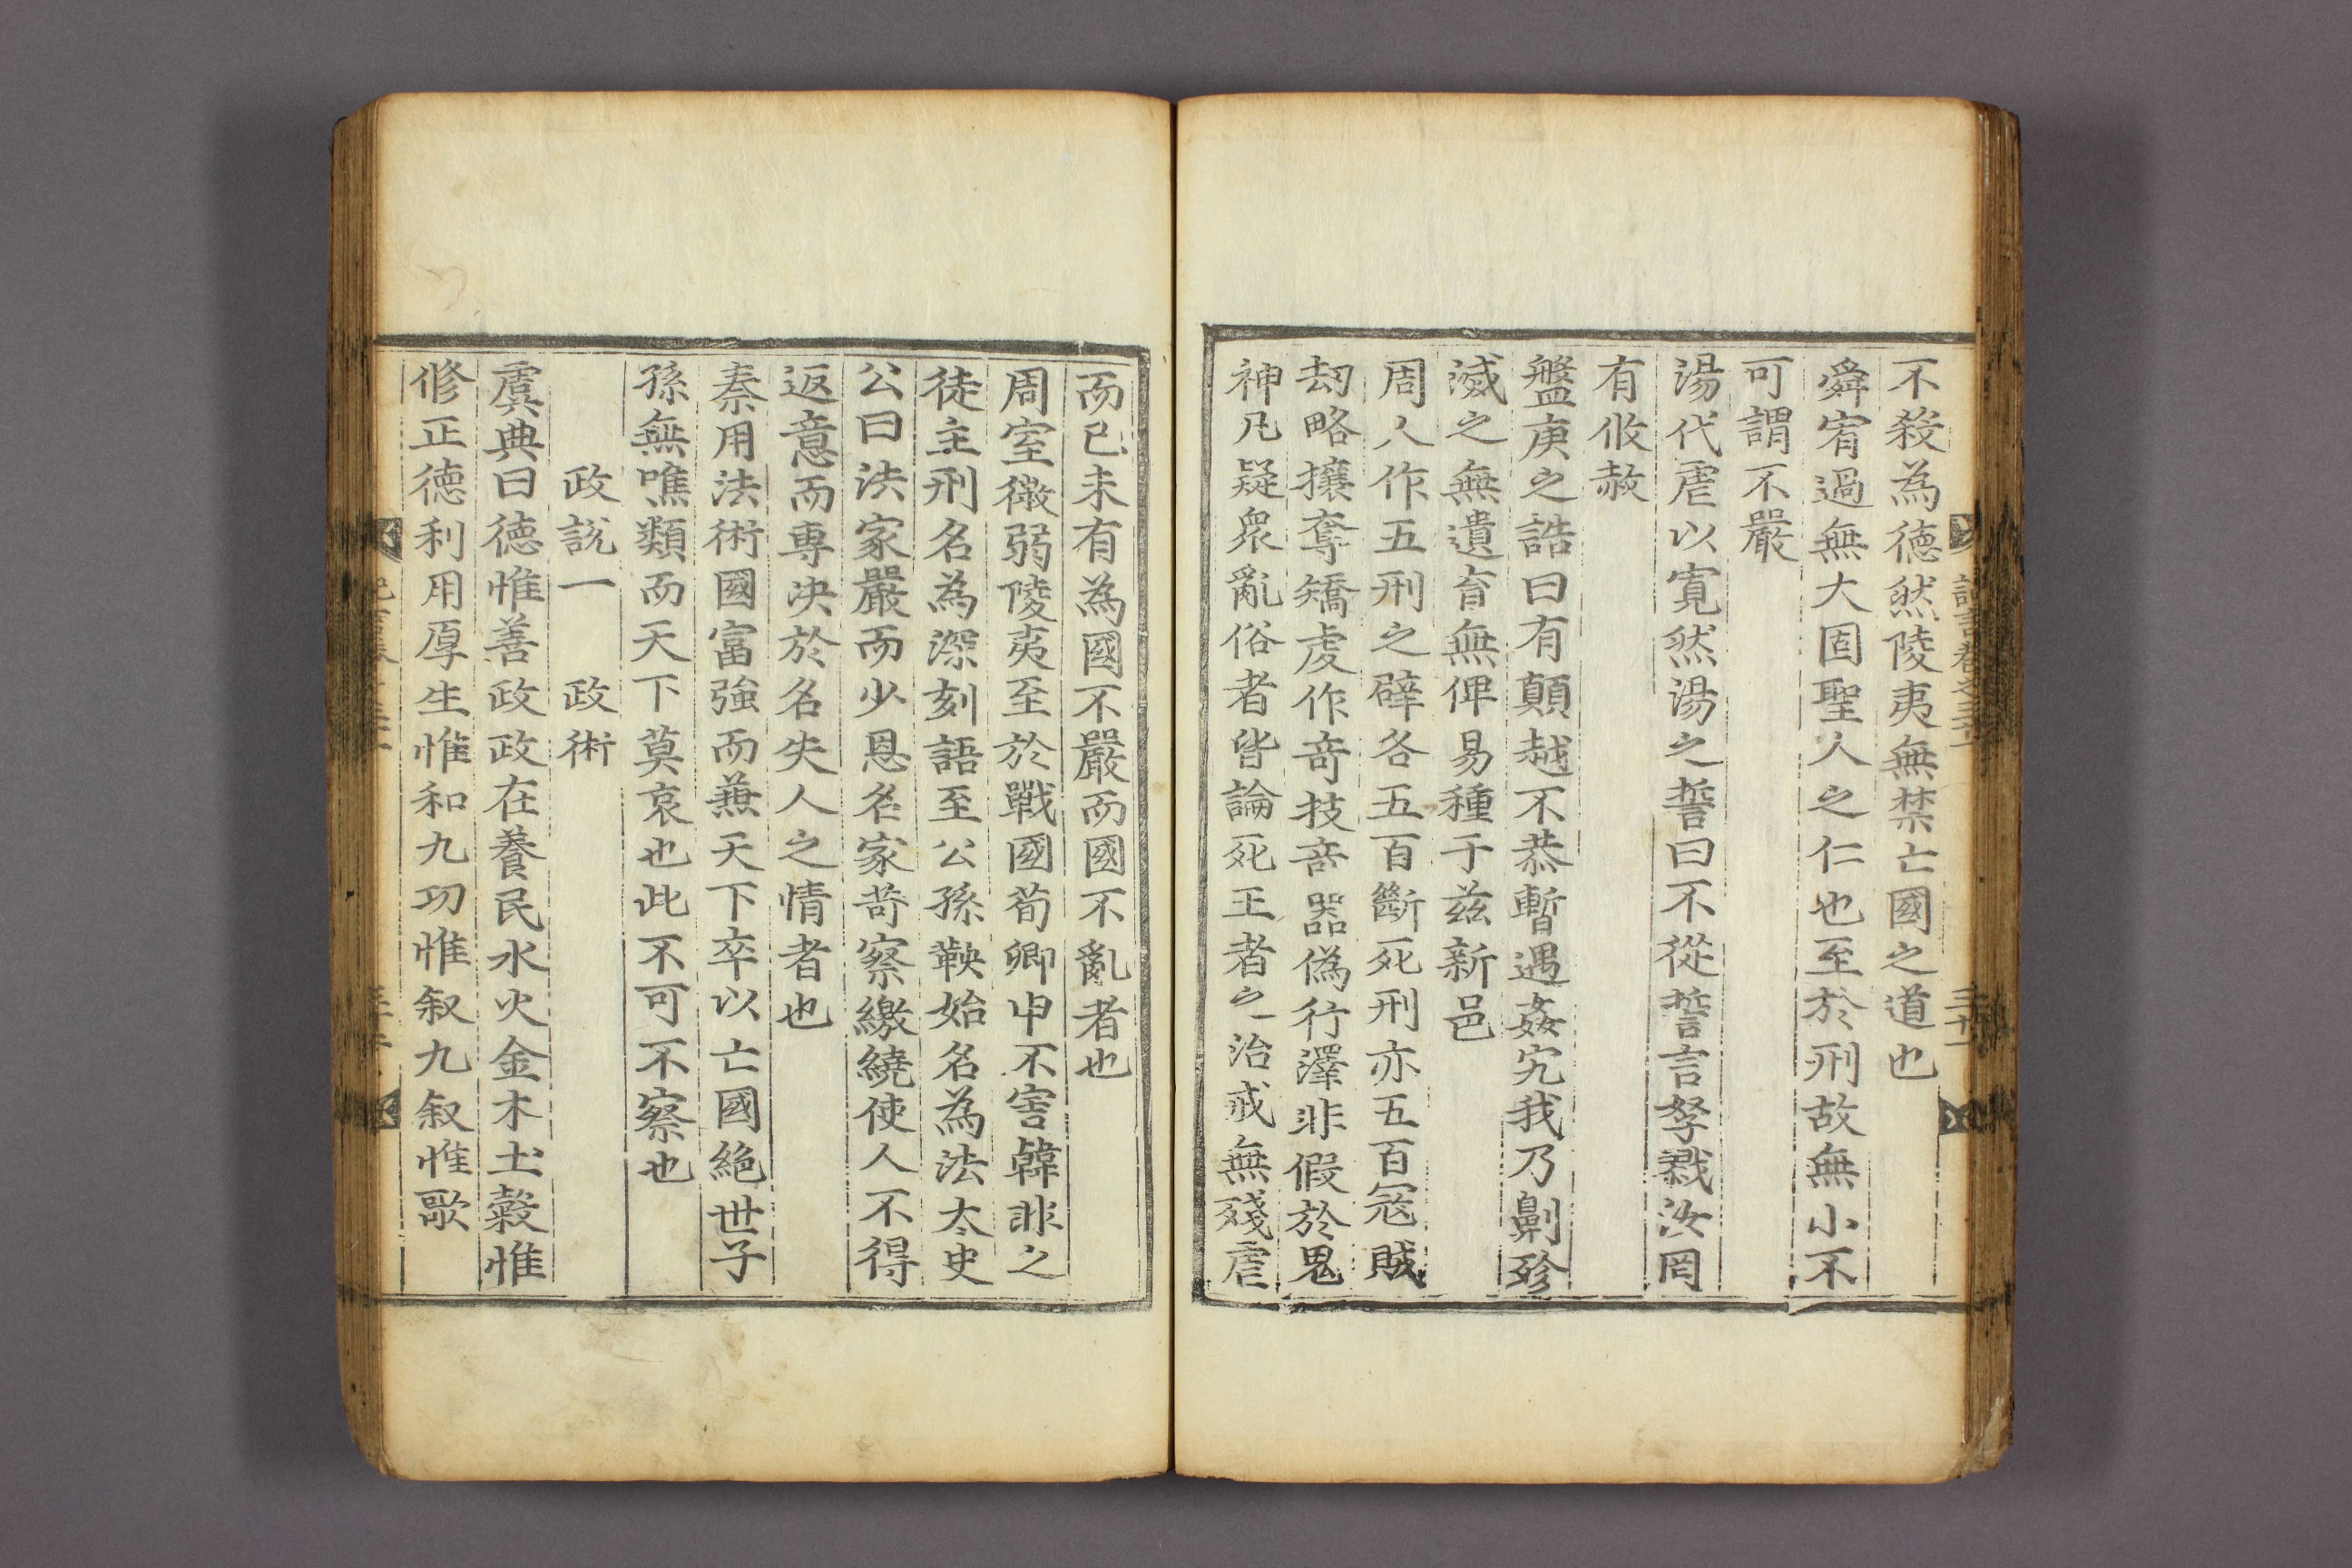 不殺為德然陵夷無禁亡國之道也
舜宥過無大固聖人之仁也至於刑故無小不
可謂不嚴
湯代虐以寬然湯之誓曰不從誓言孥戮汝罔
有攸赦
盤庚之誥曰有顛越不恭暫遇姦宄我乃劓殄
滅之無遺育無俾易種于玆新邑
周人作五刑之辟各五百斷死刑亦五百寇賊
刼略攘奪矯虔作竒技竒器僞行澤非假於鬼
神凡疑衆亂俗者皆論死王者之治戒無殘虐
而已未有為國不嚴而國不亂者也
周室微弱陵夷至於戰國荀卿申不害韓非之
徒主刑名為深刻語至公孫鞅始名為法太史
公曰法家嚴而少恩名家苛察繳繞使人不得
返意而專决於名失人之情者也
秦用法術國富強而兼天下卒以亡國絕世子
孫無噍類而天下莫哀也此不可不察也
政說一 政術
虞典曰德惟善政政在養民水火金木土穀惟
修正德利用厚生惟和九功惟叙九叙惟歌